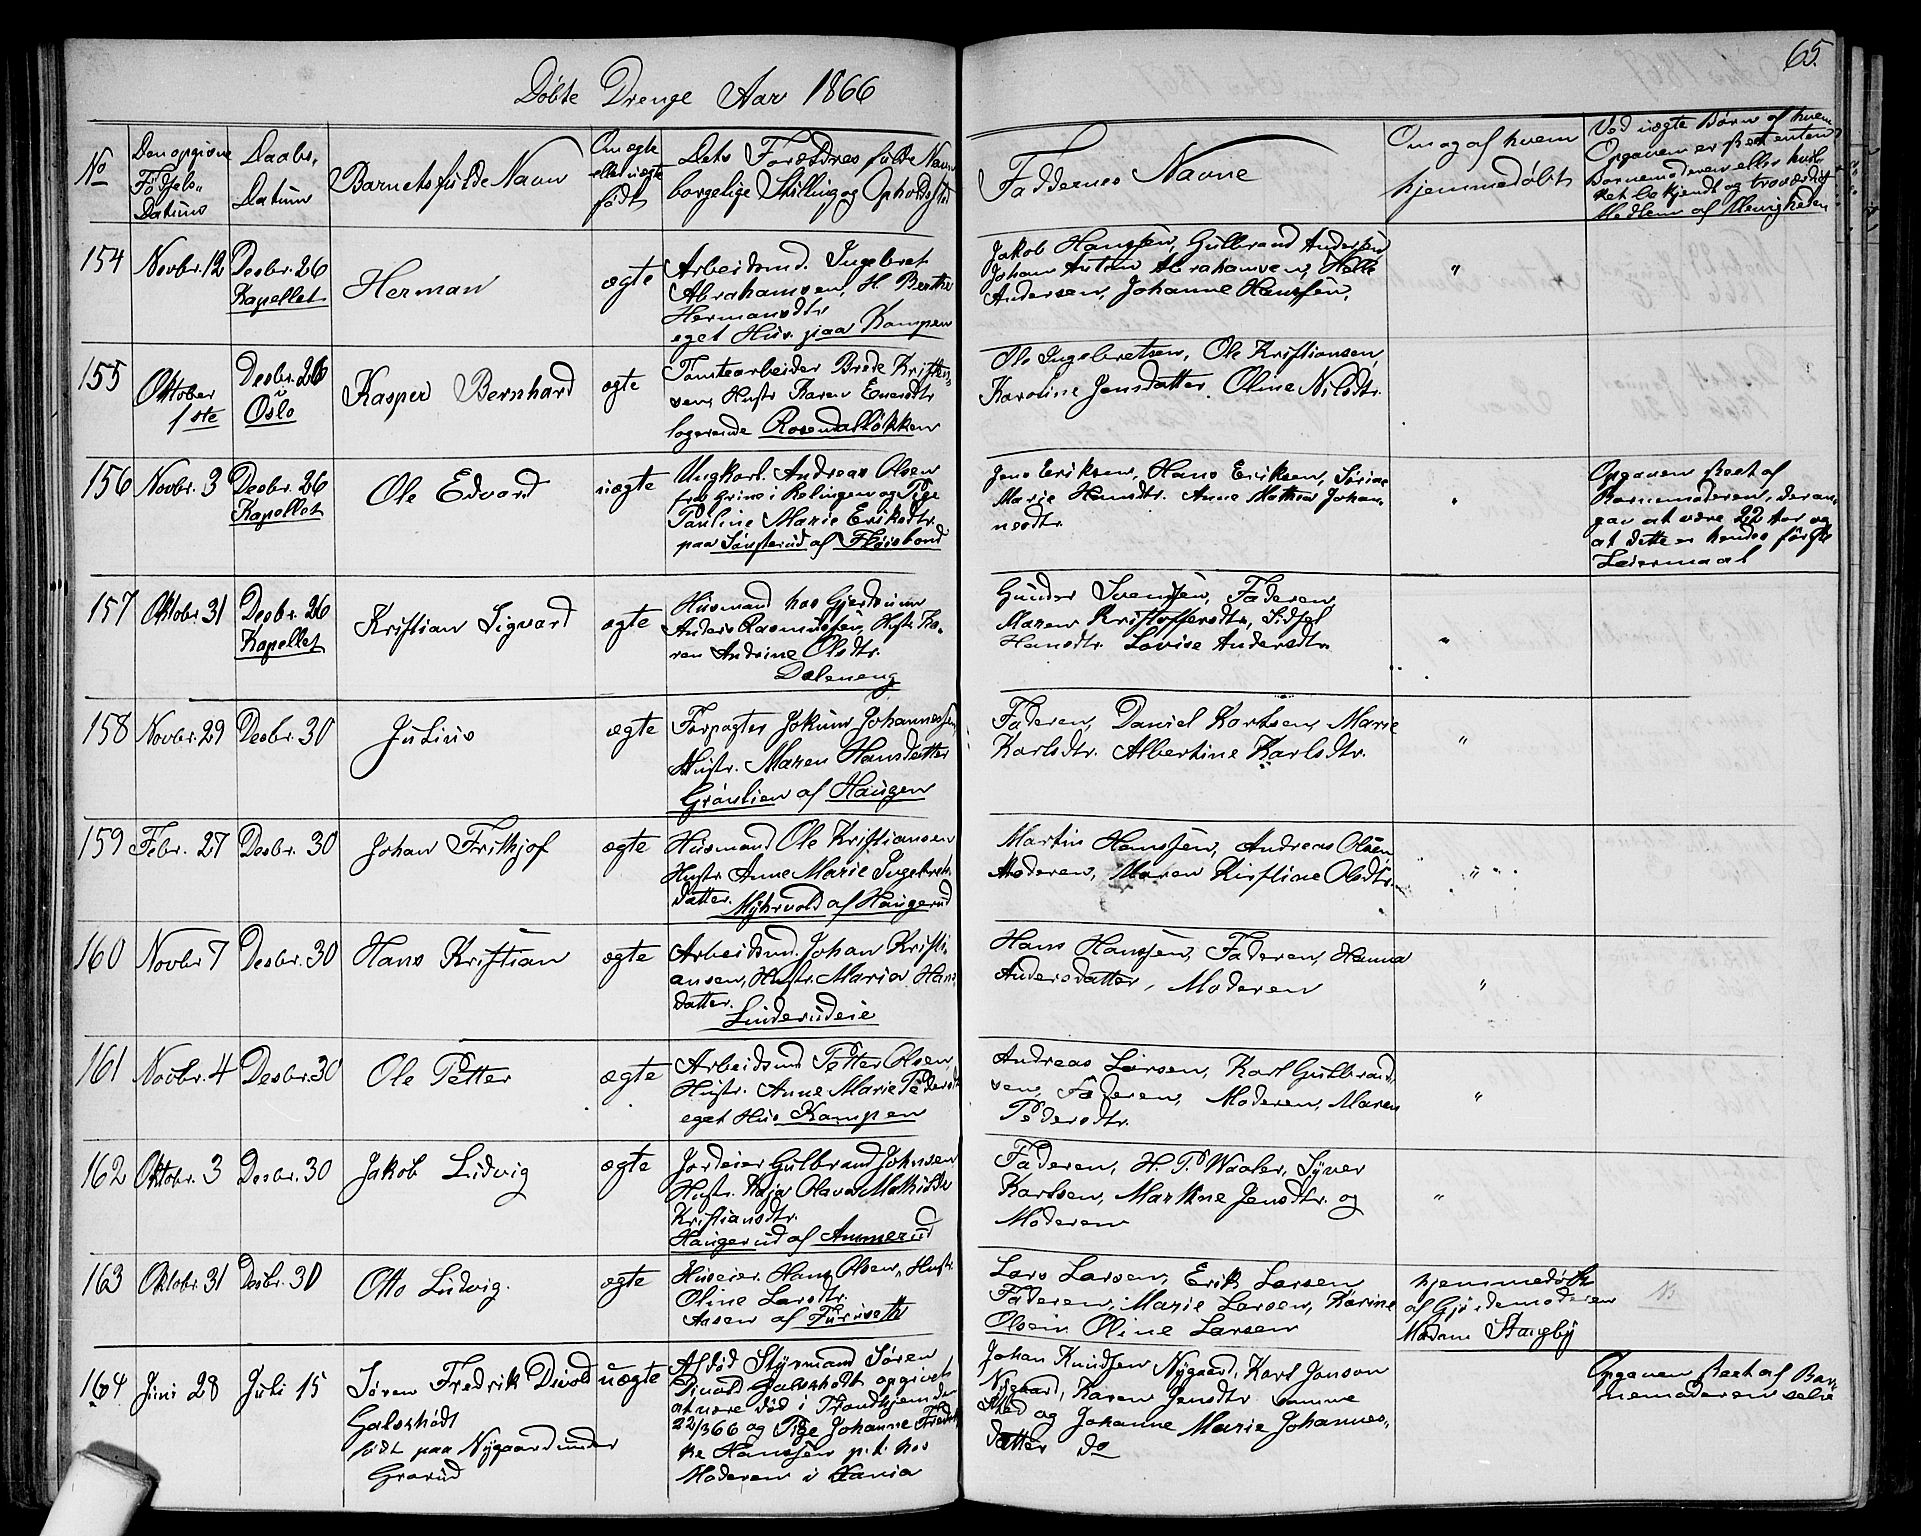 65.
Döbte Drenge Aar 1866
No
Den opgivne
Födsels
Datum
Daabs,
Datum
Barnets fulde Navn
Om ægte
eller uægte
född
Dets Forældres fulde Navn
borgelige Stilling og Opholdssted
Faddernes Navne
Om og af hvem
hjemmedöbt
Ved uægte Börn af hvem
Opgaven er skeet enten
Barnemoderen eller hvil
ket bekjendt og troværdigt
Medlem af Menigheden
154
Novbr. 12
Desbr. 26
Kapellet
Herman
ægte
Arbeidsmd. Ingebret
Abrahamsen, H. Berthe
Hermansdtr
eget Hus. paa Kampen
Jakob Hanssen, Gulbrand Andersen
Johan Anton Abrahamsen, Helle
Andersen, Johanne Hanssen,
"
155
Oktober
1ste
Desbr. 26
i
Oslo
Kasper Bernhard
ægte
Tomtearbeider Brede Kristen
sen, Hustr Karen Enersdtr
logerende Rosendallökken
Ole Ingebretsen, Ole Kristiansen,
Karoline Jensdatter. Oline Nilsdtr.
156
Novbr. 3
Desbr. 26
Kapellet
Ole Edvard
uægte
Ungkarl. Andreas Olsen
fra Grine i Relingen og Pige
Pauline Marie Eriksdtr.
paa Sönsterud af Flöisbond
Jens Eriksen, Hans Eriksen, Sörine
Marie Hansdtr. Anne Mathea Johan-
nesdtr.
"
Opgaven skeet af
Barnemoderen, der an-
gav at være 22 Aar og
at dette er hendes förste
Leiermaal
157
Oktobr. 31
Desbr. 26
Kapellet
Kristian Sigvard
ægte
Husmand hos Gjerdrum
Anders Rasmussen, Hustr. Ka-
ren Andrine Olsdtr.
Dæleneng
Gunder Svensen, Faderen,
Maren Kristoffersdtr, Sidsel
Hansdtr. Lovise Andersdtr
"
158
Novbr. 29
Desbr. 30
Julius
ægte
Forpagter Jokum Johannessen
Hustr. Maren Hansdatter
Grönlien af Haugen
Faderen, Daniel Karlsen, Marie
Karlsdtr. Albertine Karlsdtr.
"
159
Febr. 27
Desbr. 30
Johan Frithjof
ægte
Husmand Ole Kristiansen
Hustr. Anne Marie Ingebrets
datter.
Myhrvold af Haugerud
Martin Hanssen, Andreas Olsen
Moderen, Maren Kirstine Olsdtr.
"
160
Novbr 7
Desbr. 30
Hans Kristian
ægte
Arbeidsmd. Johan Kristi-
ansen, Hustr. Maria Hans
datter.
Linderudeie
Hans Hanssen, Faderen, Hanna
Andersdatter, Moderen
"
161
Novbr. 4
Desbr. 30
Ole Petter
ægte
Arbeidsmd Petter Olsen,
Hustr. Anne Marie Pedersdtr
eget Hus Kampen
Andreas Larsen, Karl Gulbrand-
sen, Faderen, Moderen, Maren
Pedersdtr.
"
162
Oktobr. 3
Desbr. 30
Jakob Ludvig
ægte
Jordeier Gulbrand Johnsen
Hustr. Kaja Olava Mathilde
Kristiansdtr.
Haugerud af Ammerud
Faderen, H. P. Waaler, Syver
Karlsen, Martine Jensdtr. og
Moderen
"
163
Oktobr. 31
Desbr. 30
Otto Ludvig.
ægte
Huseier. Hans Olsen, Hustr.
Oline Larsdtr.
Aasen af Furusett
Lars Larsen, Erik Larsen
Faderen, Marie Larsen, Karine
Olsen Oline Larsen
hjemmedöbt
af Gjordemoderen
Madam Stangby
164
Juni 28
Juli 15
Sören Fredrik Divold
Galskhödt
född paa Nygaard under
Grorud
uægte
Afdöd Styrmand Sören
Divold Galskhödt opgivet
at være död i Trondhjem den
22/3 66 og Pige Johanne Fredrik
ke Hanssen p. t. hos
Moderen i Vania
Johan Knudssen Nygaard, Karl Jonson
Nygaard, Karen Jensdtr samme
Sted og Johanne Marie Johannes-
datter do
Opgaven skeet af Bar
nemoderen selv